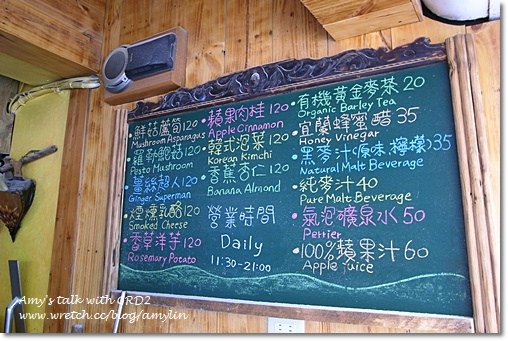 鮮菇蘆筍120
Mushroom Asparagus
羅勒鮑菇120
Pesto Mushroom
薑絲超人120
Ginger Superman
煙燻乳酪120
Smoked Cheese
香草洋芋120
Rosemary Potato
蘋果肉桂120
Apple Cinnamon
韓式泡菜120
Korean Kimchi
香蕉杏仁120
Banana Almond
營業時間
Daily
11:30-21:00
有機黃金麥茶20
Organic Barley Tea
宜蘭蜂蜜醋35
Honey Vinegar
黑麥汁(原味.檸檬)35
Natural Malt Beverage
純麥汁40
Pure Malt Beverage
氣泡礦泉水50
Perrier
100%蘋果汁60
Apple juice
Amy's talk with ORD2
www.wretch.cc/blog/amylin